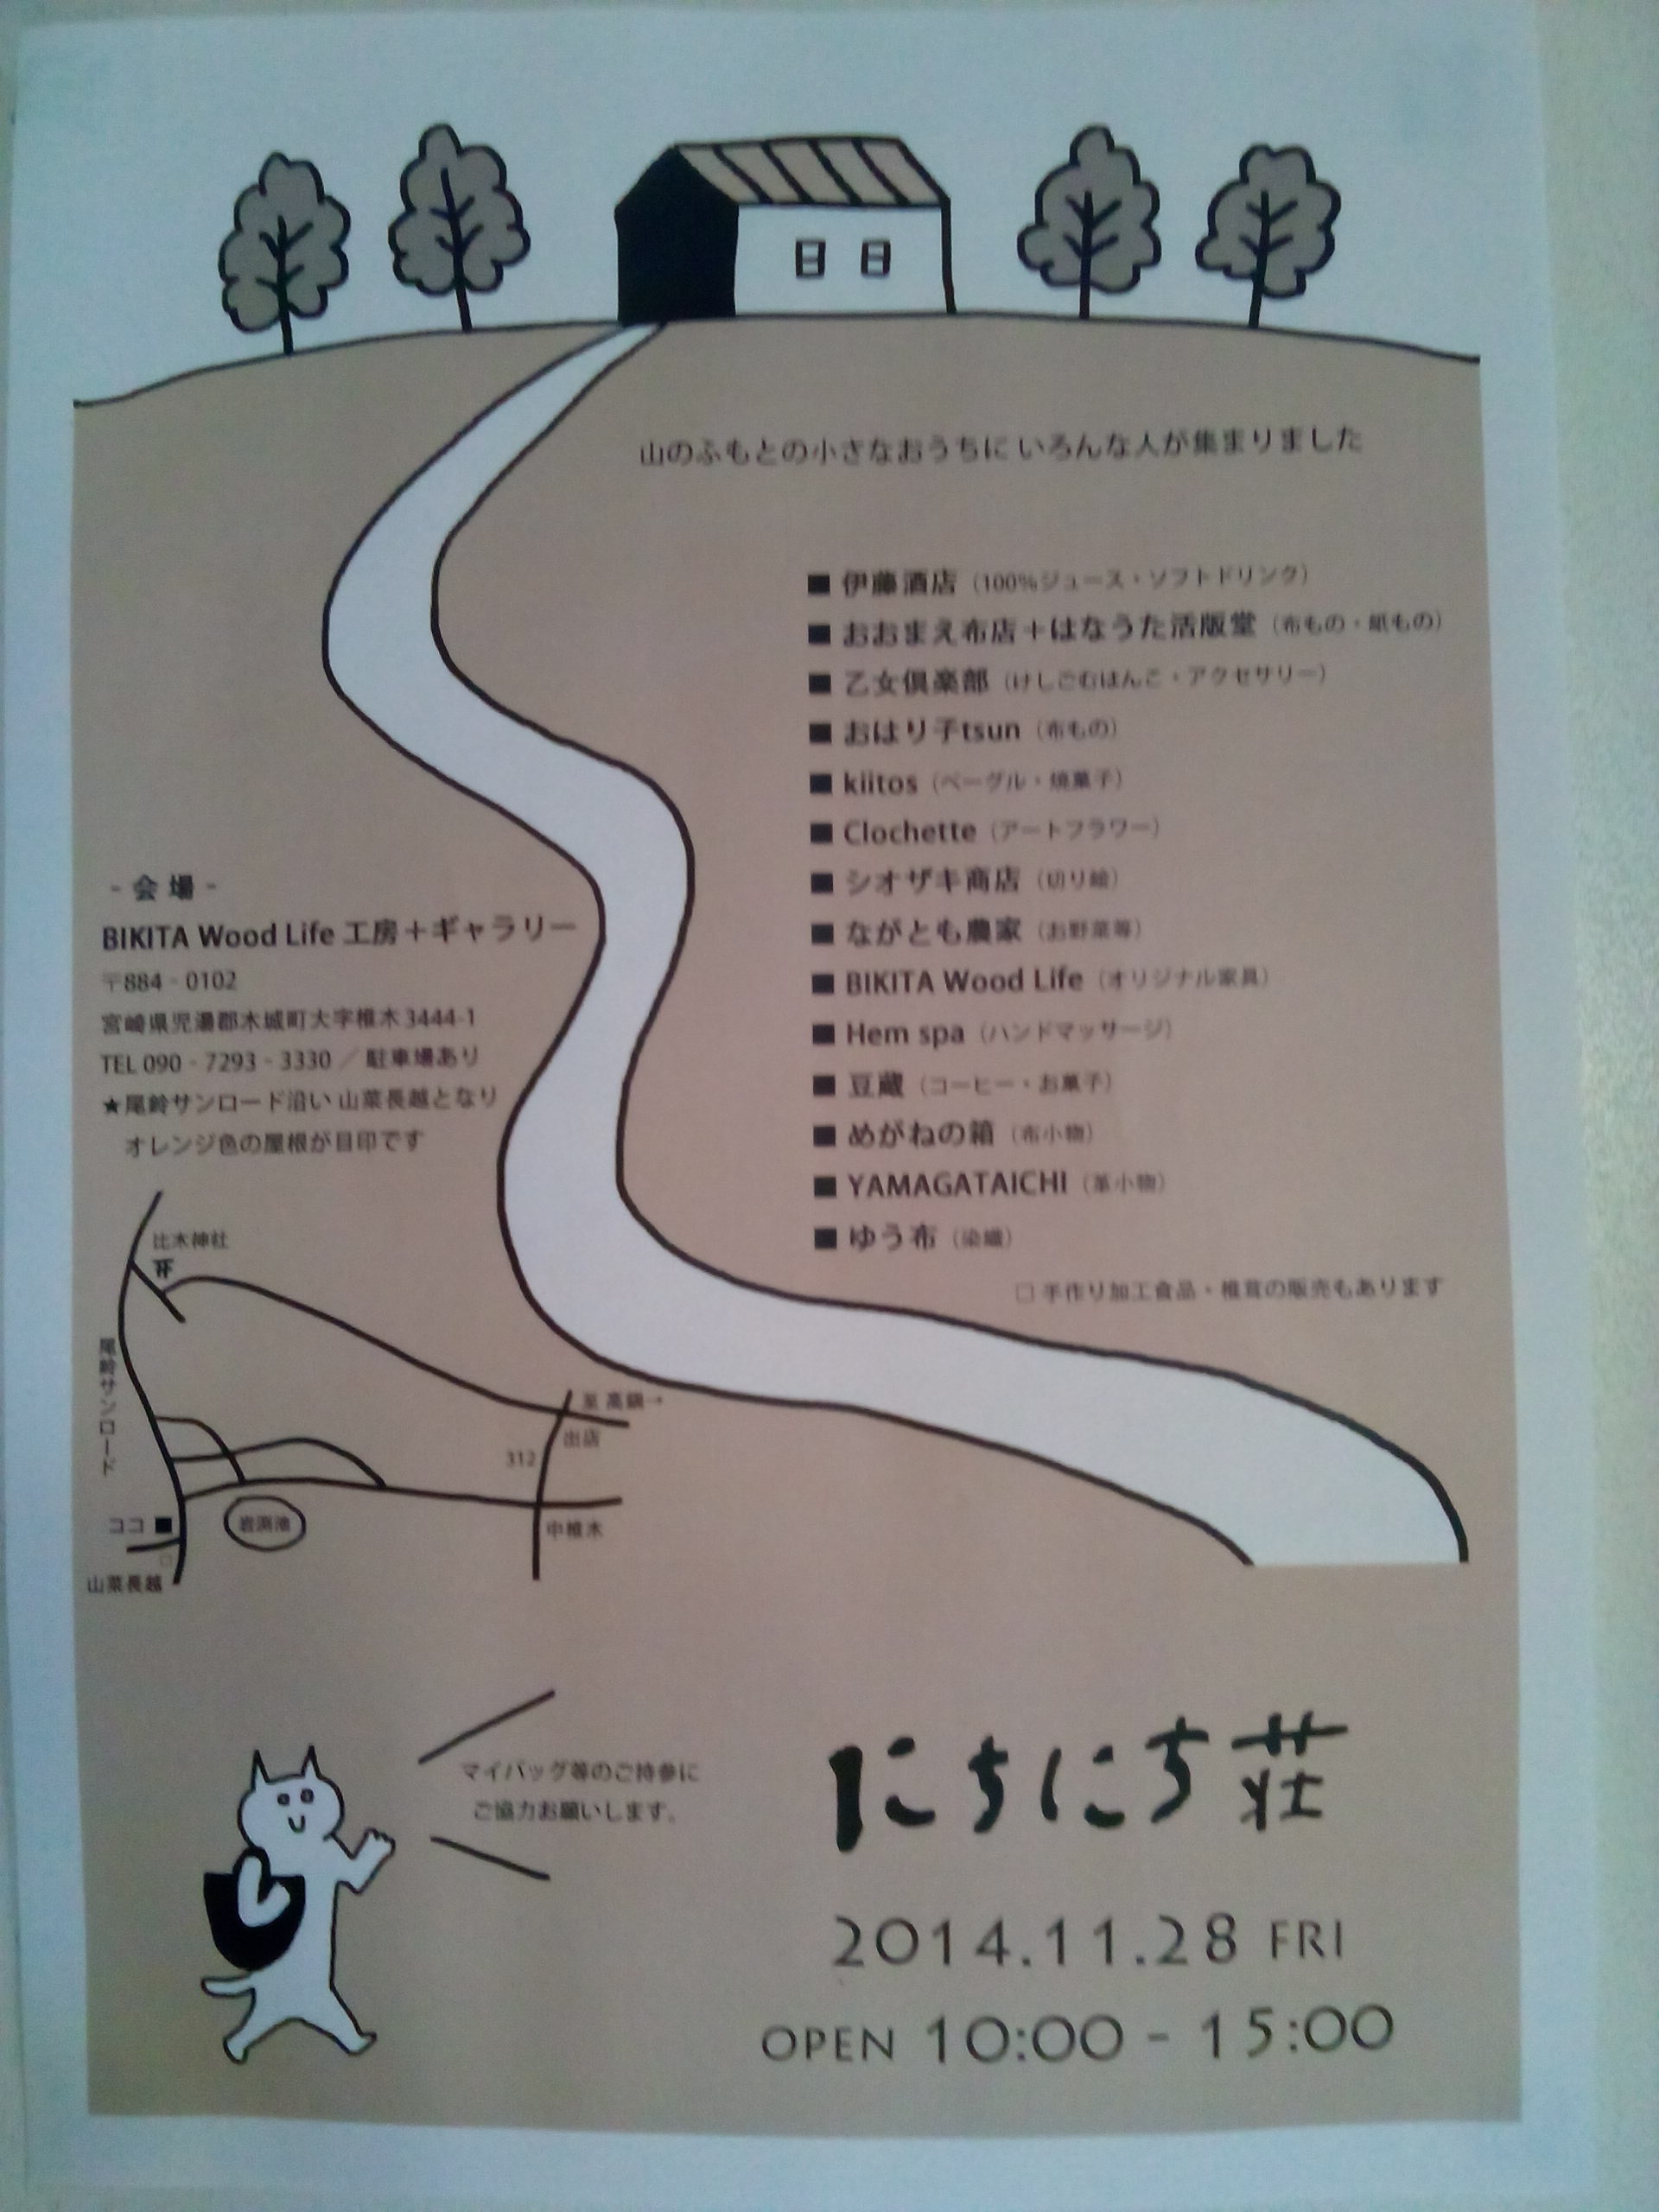 山のふもとの小さなおうちに いろんな人が集まりました
■ 伊藤酒店（100%ジュース・ソフトドリンク）
■ おおまえ布店＋はなうた活版堂（布もの・紙もの）
■ 乙女倶楽部（けしごむはんこ・アクセサリー）
■ おはり子tsun（布もの）
■ kiitos（ベーグル・焼菓子）
■ Clochette（アートフラワー）
■ シオザキ商店（切り絵）
■ ながとも農家（お野菜等）
■ BIKITA Wood Life（オリジナル家具）
■ Hem spa（ハンドマッサージ）
■ 豆蔵（コーヒー・お菓子）
■ めがねの箱（布小物）
■ YAMAGATAICHI（革小物）
■ ゆう布（染織）
□ 手作り加工食品・椎茸の販売もあります
- 会 場 -
BIKITA Wood Life 工房＋ギャラリー
〒884 - 0102
宮崎県児湯郡木城町大字椎木3444-1
TEL 090 - 7293 - 3330 ／ 駐車場あり
★尾鈴サンロード沿い 山菜長越となり
オレンジ色の屋根が目印です
比木神社
尾鈴サンロード
至 高鍋→
出店
312
ココ
岩渕池
中椎木
山菜長越
マイバッグ等のご持参に
ご協力お願いします。
にちにち荘
2014.11.28 FRI
OPEN 10:00 - 15:00